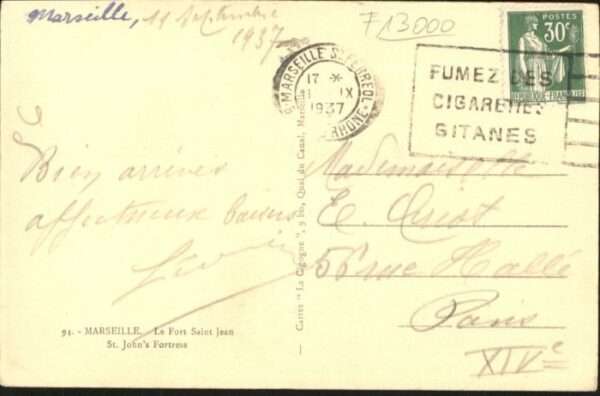 Marseille, 11 Septembre
1937
F13000
POSTES
30c
MARSEILLE St FERREOL
17 *
IX
1937
RHONE
FUMEZ DES
CIGARETTES
GITANES
Bien arrivés
affectueux baisers
Mademoiselle
E.
56 rue Hallé
Paris
XIVe
Cartes "La Cigogne", 9 bis, Quai du Canal, Marseille
94. - MARSEILLE. Le Fort Saint Jean
St. John's Fortress